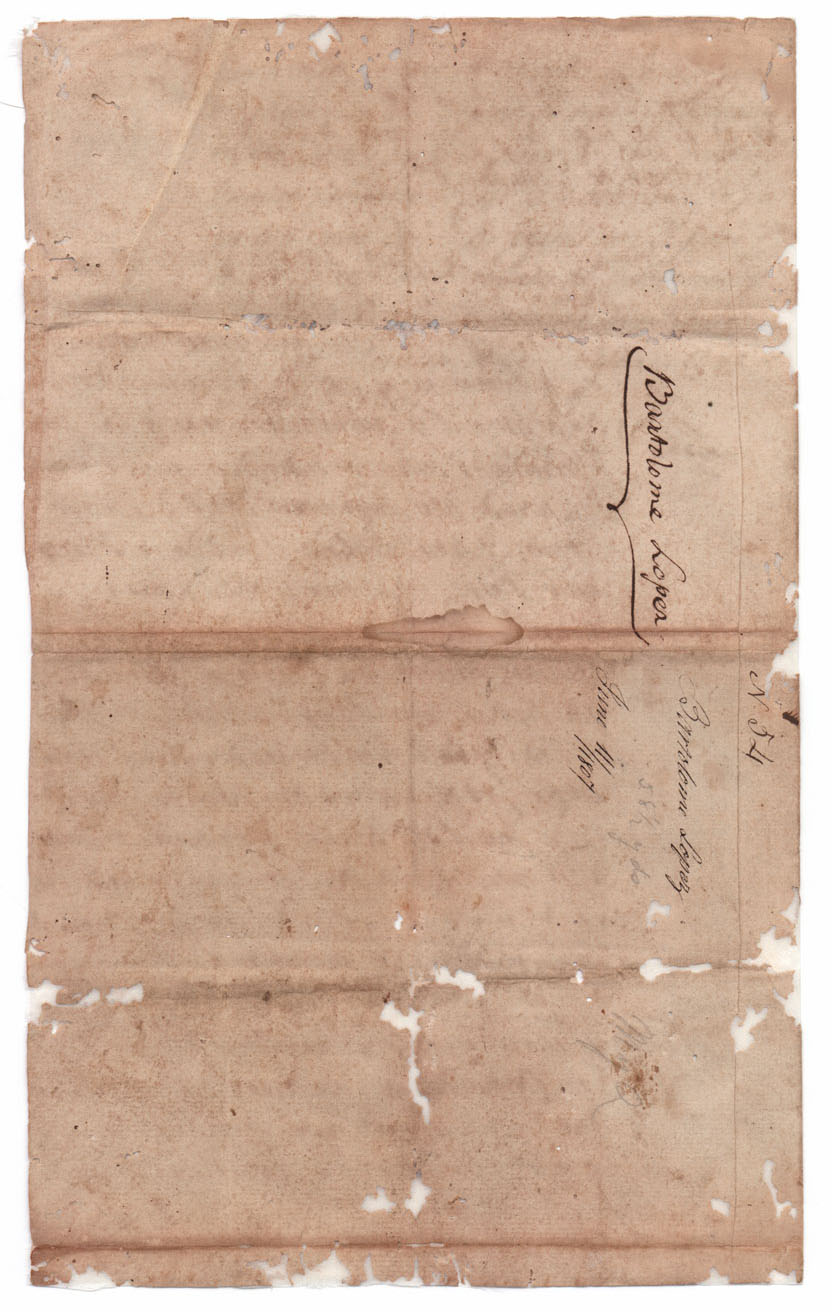 Bartolome Lopez
N 54
Bartolome Lopez
June 11 1807